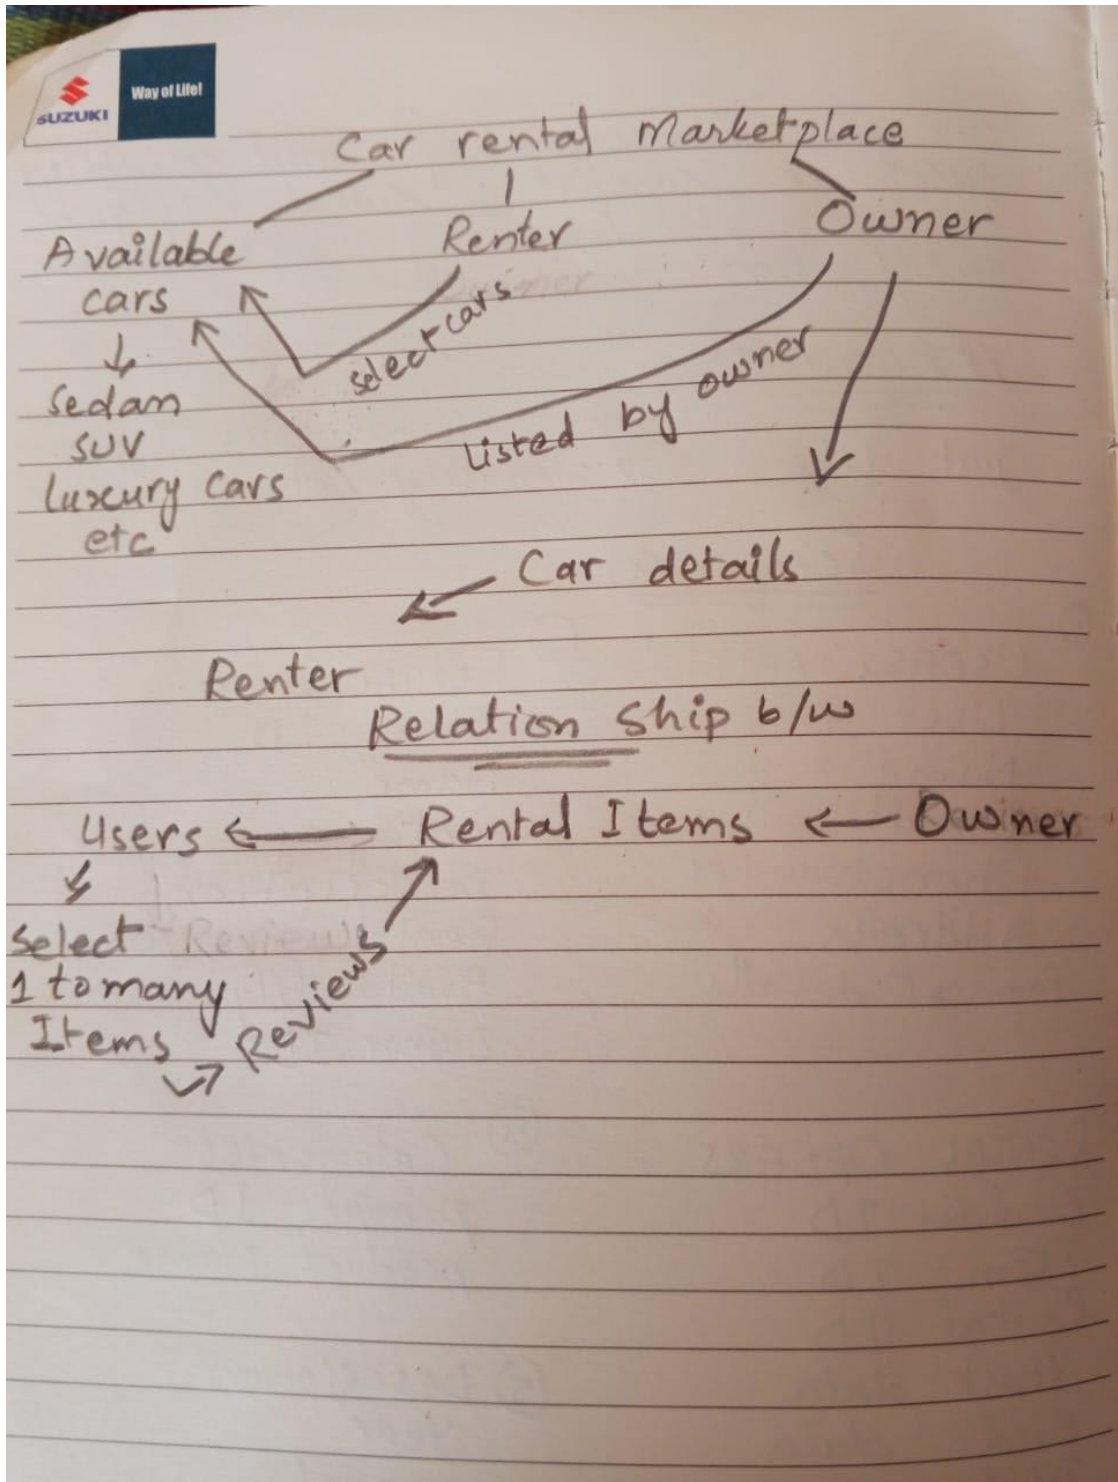 SUZUKI
Way of Life!
Car rental Marketplace
Available
cars
Renter
Owner
select cars
Listed by owner
Sedan
SUV
luxury cars
etc
Car details
Renter
Relation Ship b/w
Users
Rental Items
Owner
Select
1 to many
Items
Reviews